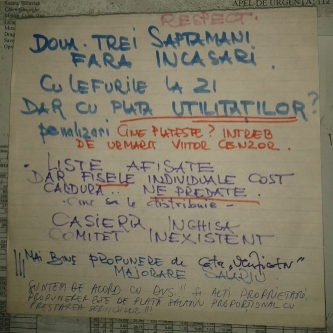 APEL DE URGENTA: 112
RESPECT.
DOUA. TREI SAPTAMANI
FARA INCASARI.
CU LEFURILE LA ZI
DAR CU PLATA UTILITATILOR?
penalizari CINE PLATESTE? INTREB
DE URMARIT VIITOR CENZOR.
- LISTE AFISATE
DAR FISELE INDIVIDUALE COST
CALDURA... NE PREDATE.
- Cine sa le distribuie -
CASIERA INCHISA
COMITET INEXISTENT
!!! MAI BINE PROPUNERE de
MAJORARE SALARIU
SUNTEM DE ACORD CU DVS!! SI ALTI PROPRIETARI
PROPUNEREA ESTE DE PLATA SALARIU PROPORTIONAL CU
PRESTAREA SERVICIULUI!!!